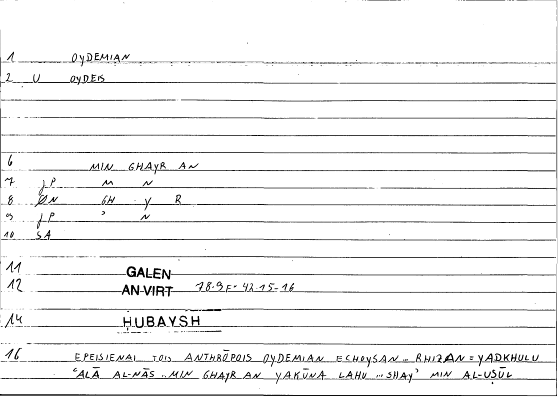 1 OYDEMIAN
2 U OYDEIS
6 MIN GHAYR AN
7 JP M N
8 ØN GH Y R
9 JP ʾ N
10 SA
11 GALEN
12 AN-VIRT 78.9F. = 42.15-16
14 HUBAYSH
16 EPEISIENAI TOIS ANTHRŌPOIS OYDEMIAN ECHOYSAN .. RHIZAN = YADKHULU
ʿALĀ AL-NĀS .. MIN GHAYR AN YAKŪNA LAHU .. SHAYʾ MIN AL-UṢŪL